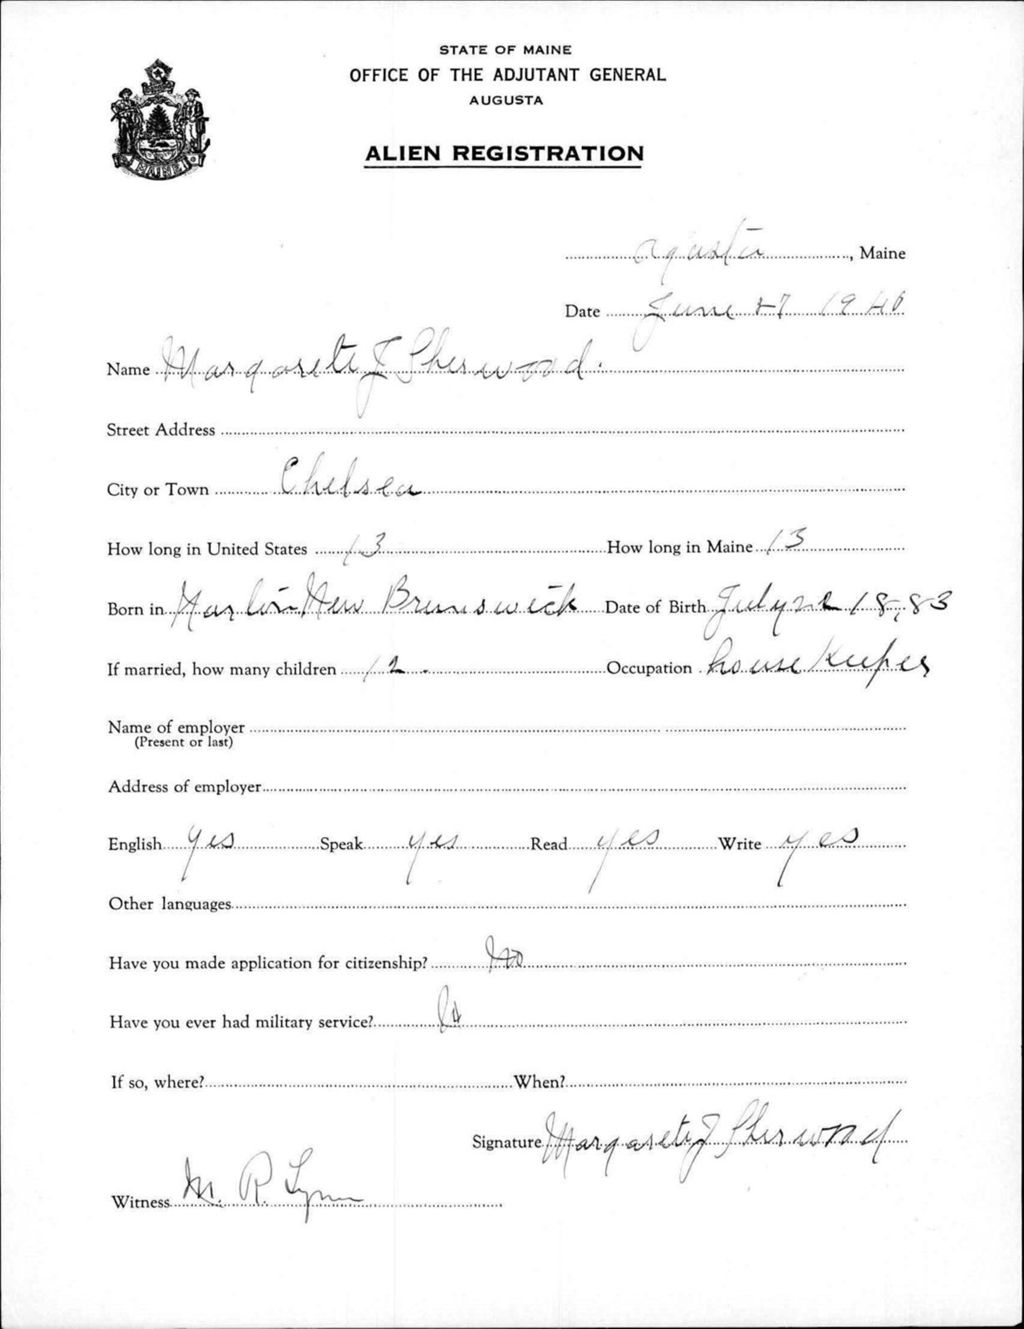 STATE OF MAINE
OFFICE OF THE ADJUTANT GENERAL
AUGUSTA
ALIEN REGISTRATION
MAINE
Agusta, Maine
Date June 27 1940
Name Margarete J Sherwood.
Street Address
City or Town Chelsea
How long in United States 13 How long in Maine 13
Born in New Brunswick Date of Birth July 22 1883
If married, how many children 12. Occupation house Keeper
Name of employer
(Present or last)
Address of employer
English yes Speak yes Read yes Write yes
Other languages
Have you made application for citizenship? No
Have you ever had military service?
If so, where? When?
Signature Margarete J Sherwood
Witness M. R. Lynn